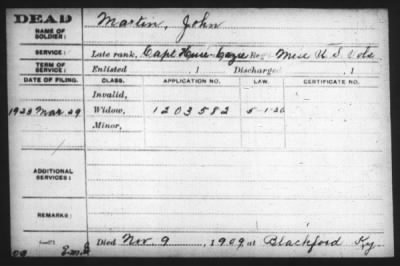 DEAD
NAME OF SOLDIER: Martin, John
SERVICE: Late rank, Capt Regt Misc U S Vols
TERM OF SERVICE: Enlisted 1 Discharged , 1
DATE OF FILING. CLASS. APPLICATION NO. CERTIFICATE NO.
Invalid,
1923 Mar. 29 Widow, 1203582 5-1-20
Minor,
ADDITIONAL SERVICES:
REMARKS:
Died Nov. 9, 1909, at Blackford Ky.